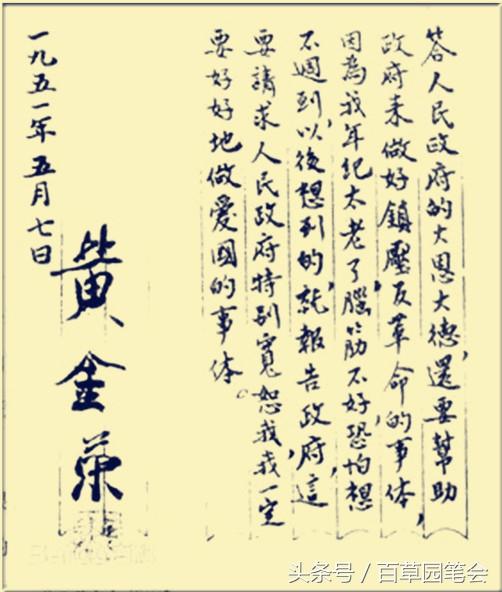 答人民政府的大恩大德，還要幫助
政府来做好鎮壓反革命的事体，
因為我年纪太老了，腦筋不好，恐怕想
不週到，以後想到的，就報告政府，這
要請求人民政府特别寬恕我，我一定
要好好地做愛國的事体。
一九五一年五月七日
黄金荣
头条号／百草园笔会